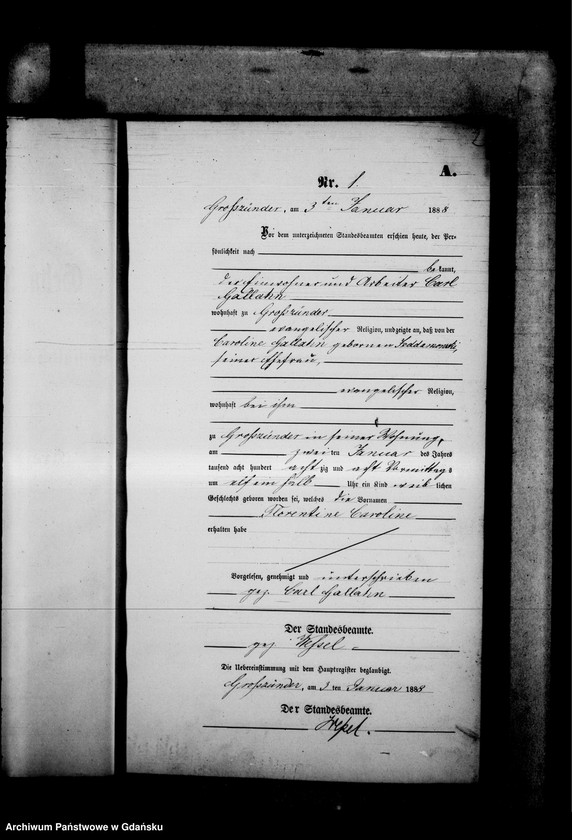 A.
Nr. 1.
Großzünder, am 3ten Januar 1888
Vor dem unterzeichneten Standesbeamten erschien heute, der Per-
sönlichkeit nach
bekannt,
der Einwohner und Arbeiter Carl
Gallahn
wohnhaft zu Großzünder
evangelischer Religion, und zeigte an, daß von der
Caroline Gallahn gebornen
seiner Ehefrau,
evangelischer Religion,
wohnhaft bei ihm
zu Großzünder in seiner Wohnung,
am zweiten Januar des Jahres
tausend acht hundert achtzig und acht Vormittags
um elf ein halb Uhr ein Kind weiblichen
Geschlechts geboren worden sei, welches die Vornamen
Florentine Caroline
erhalten habe
Vorgelesen, genehmigt und unterschrieben
gez. Carl Gallahn
Der Standesbeamte.
gez. Wessel
Die Uebereinstimmung mit dem Hauptregister beglaubigt.
Großzünder, am 3ten Januar 1888
Der Standesbeamte.
Wessel.
Archiwum Państwowe w Gdańsku